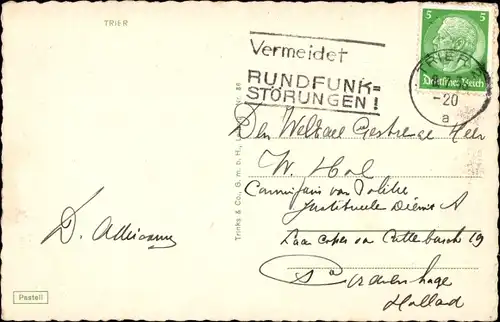 TRIER
Vermeidet
RUNDFUNK=
STÖRUNGEN!
5 5
Deutsches Reich
TRIER
-20
a
Den Weledele Gestrenge Heer
W. Hol
Commissaris van Politie
Justitieele Dienst A
Laan Copes van Cattenburch 19
's Gravenhage
Holland
Trinks & Co., G. m. b. H.,
Pastell